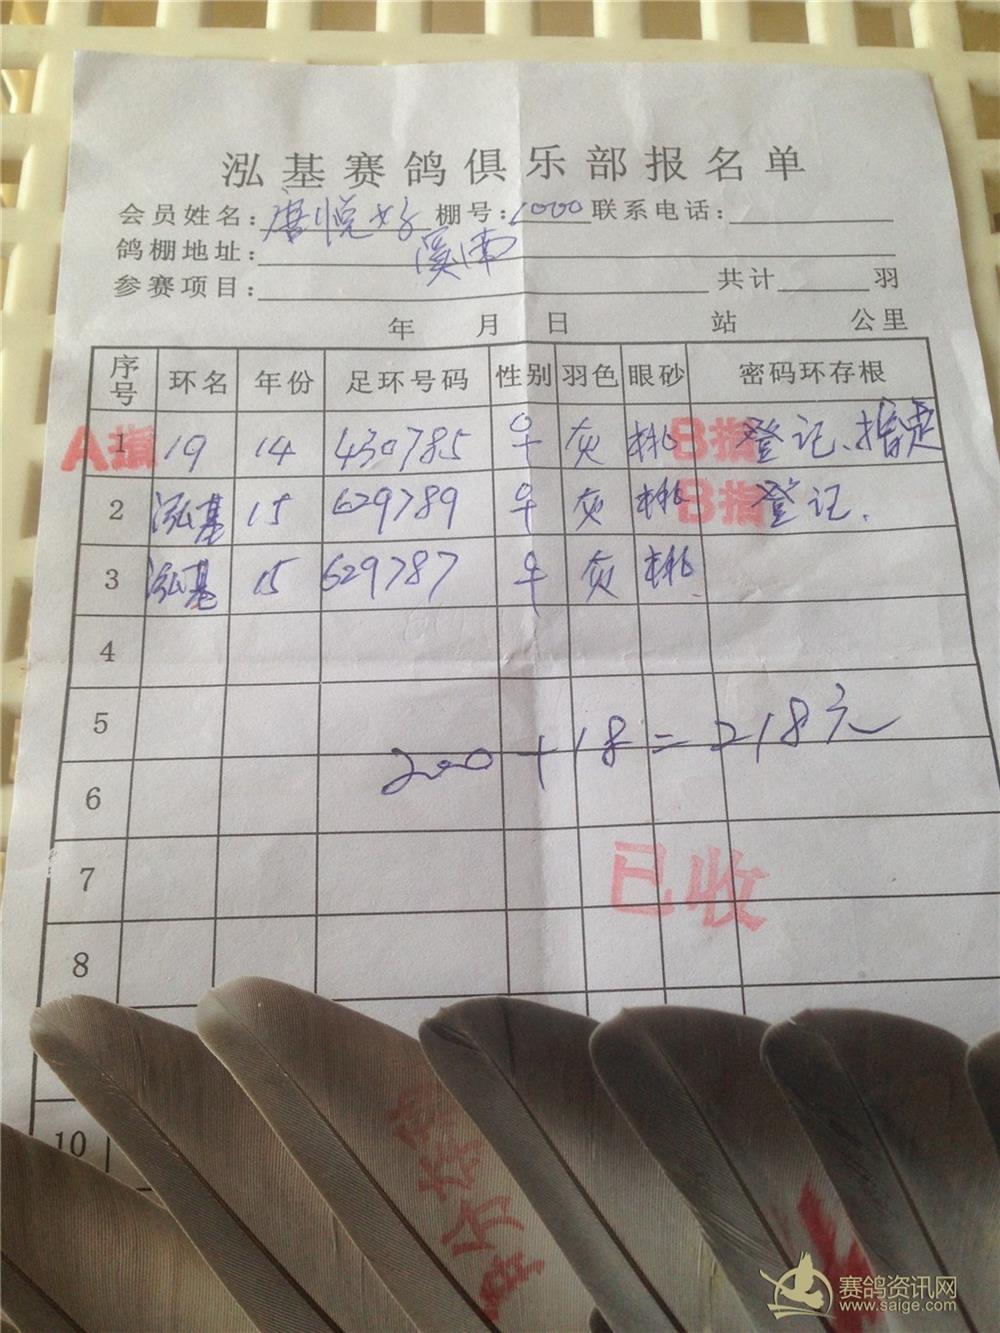 泓基赛鸽俱乐部报名单
会员姓名：唐悦好 棚号：1000 联系电话：
鸽棚地址：溪南
参赛项目： 共计 羽
年 月 日 站 公里
序号 环名 年份 足环号码 性别 羽色 眼砂 密码环存根
A指 1 19 14 430785 ♀ 灰 桃 B指 登记、指定
2 泓基 15 629789 ♀ 灰 桃 B指 登记.
3 泓基 15 629787 ♀ 灰 桃
4
5
200+18=218元
6
7 已收
8
10
赛鸽资讯网
www.saige.com